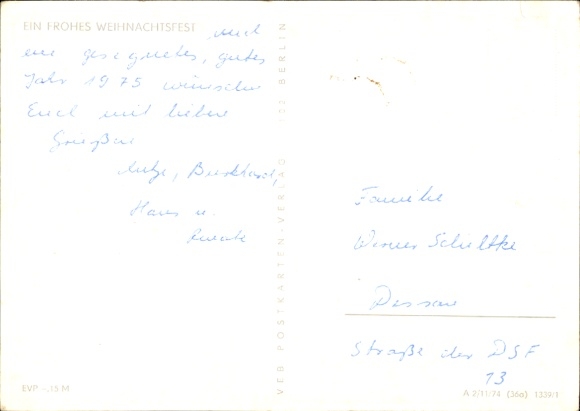 EIN FROHES WEIHNACHTSFEST und
ein gesegnetes, gutes
Jahr 1975 wünschen
Euch mit lieben
Grüßen
Antje, Burkhard,
Hans u.
VEB POSTKARTEN-VERLAG 102 BERLIN
Familie
Werner
Dessau
Straße der DSF
13
EVP -.15 M
A 2/11/74 (36a) 1339/1